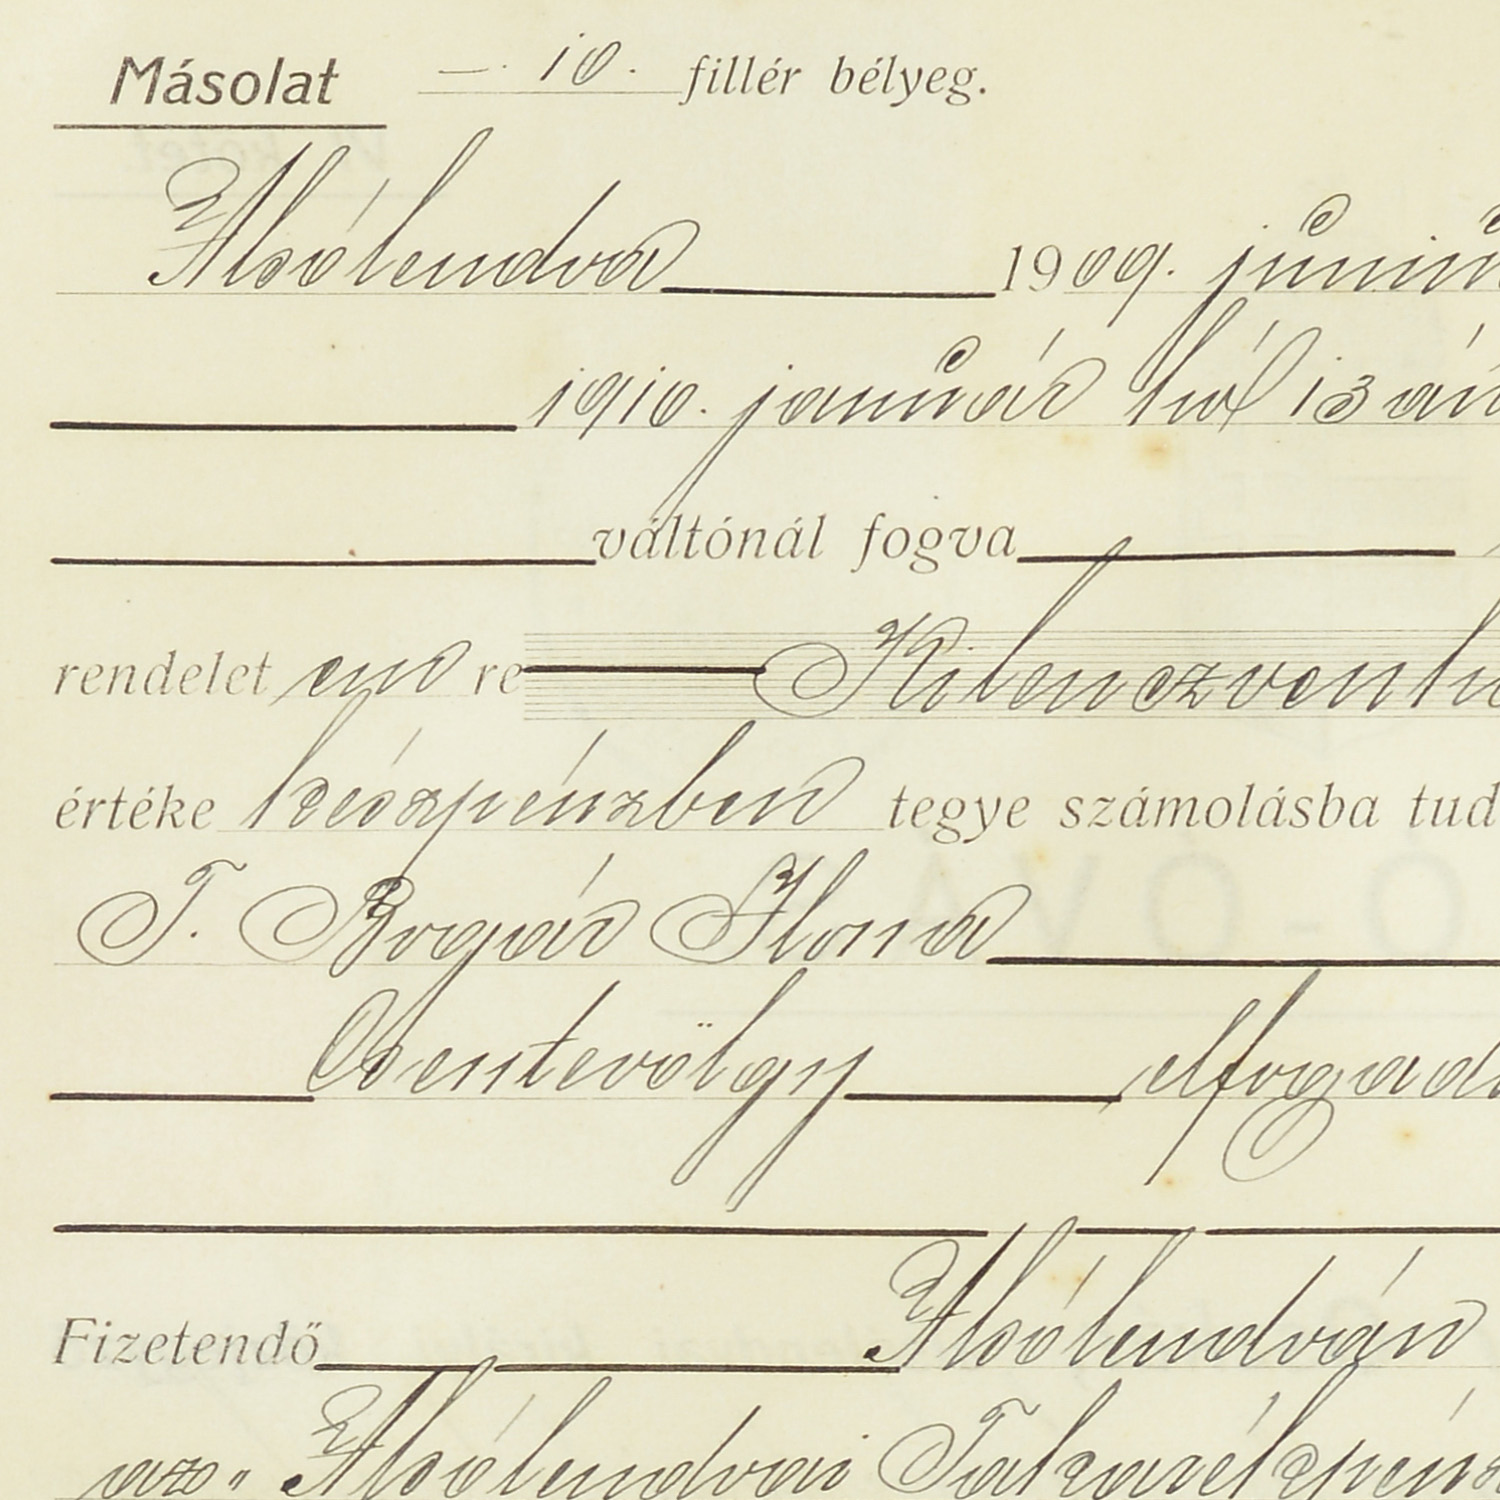 Másolat —. 10. fillér bélyeg.
Alsólendva 1909. júniu
1910. január hó 13 án
váltónál fogva
rendelet em re Kilenczven
értéke készpénzben tegye számolásba tud
T. Bogár Ilona
Csentevölgy elfogad
Fizetendő Alsólendván
az „ Alsólendvai Takarékpénz